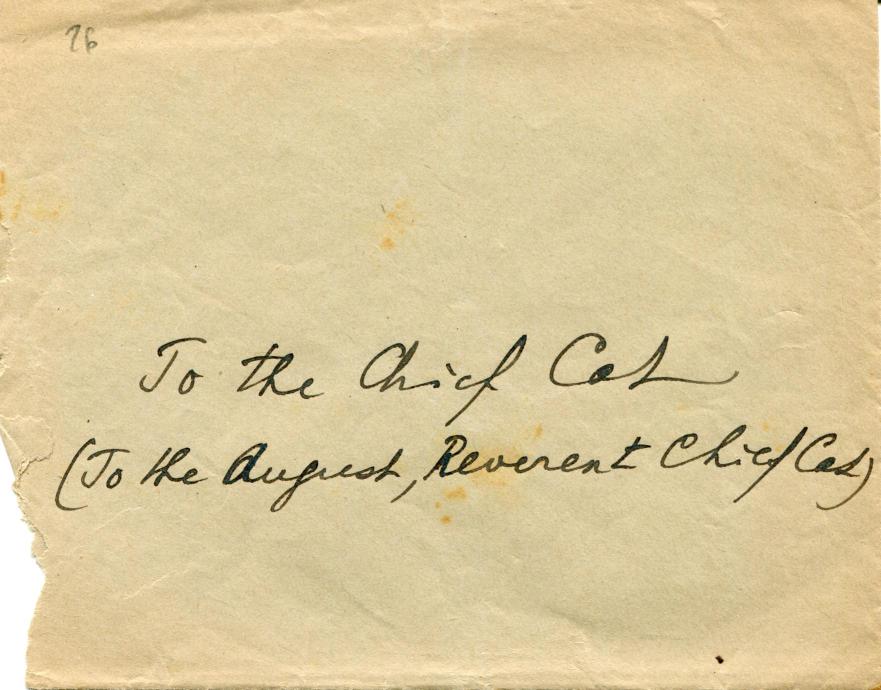 76
To the Chief Cat
(To the August, Reverent Chief Cat)